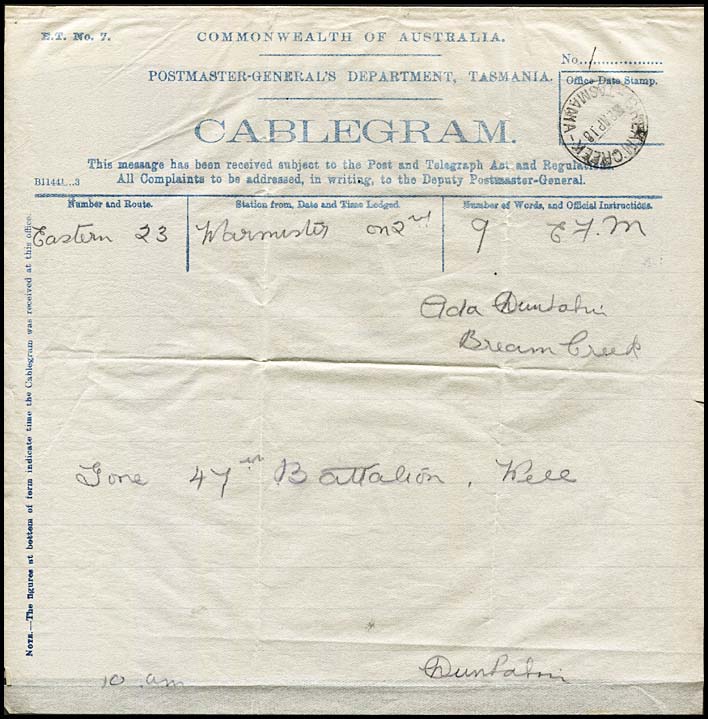 E.T. No. 7.
COMMONWEALTH OF AUSTRALIA.
No. 1
POSTMASTER-GENERAL'S DEPARTMENT, TASMANIA.
Office Date Stamp.
BREAM CREEK
TASMANIA
AP 18
CABLEGRAM.
This message has been received subject to the Post and Telegraph Act and Regulations.
All Complaints to be addressed, in writing, to the Deputy Postmaster-General.
Number and Route.
Station from, Date and Time Lodged.
Number of Words, and Official Instructions.
Eastern 23
Warminster on 2nd
9 E F M
Ada
Bream Creek
Gone 47th Battalion, Well
10 am
NOTE.—The figures at bottom of form indicate time the Cablegram was received at this office.